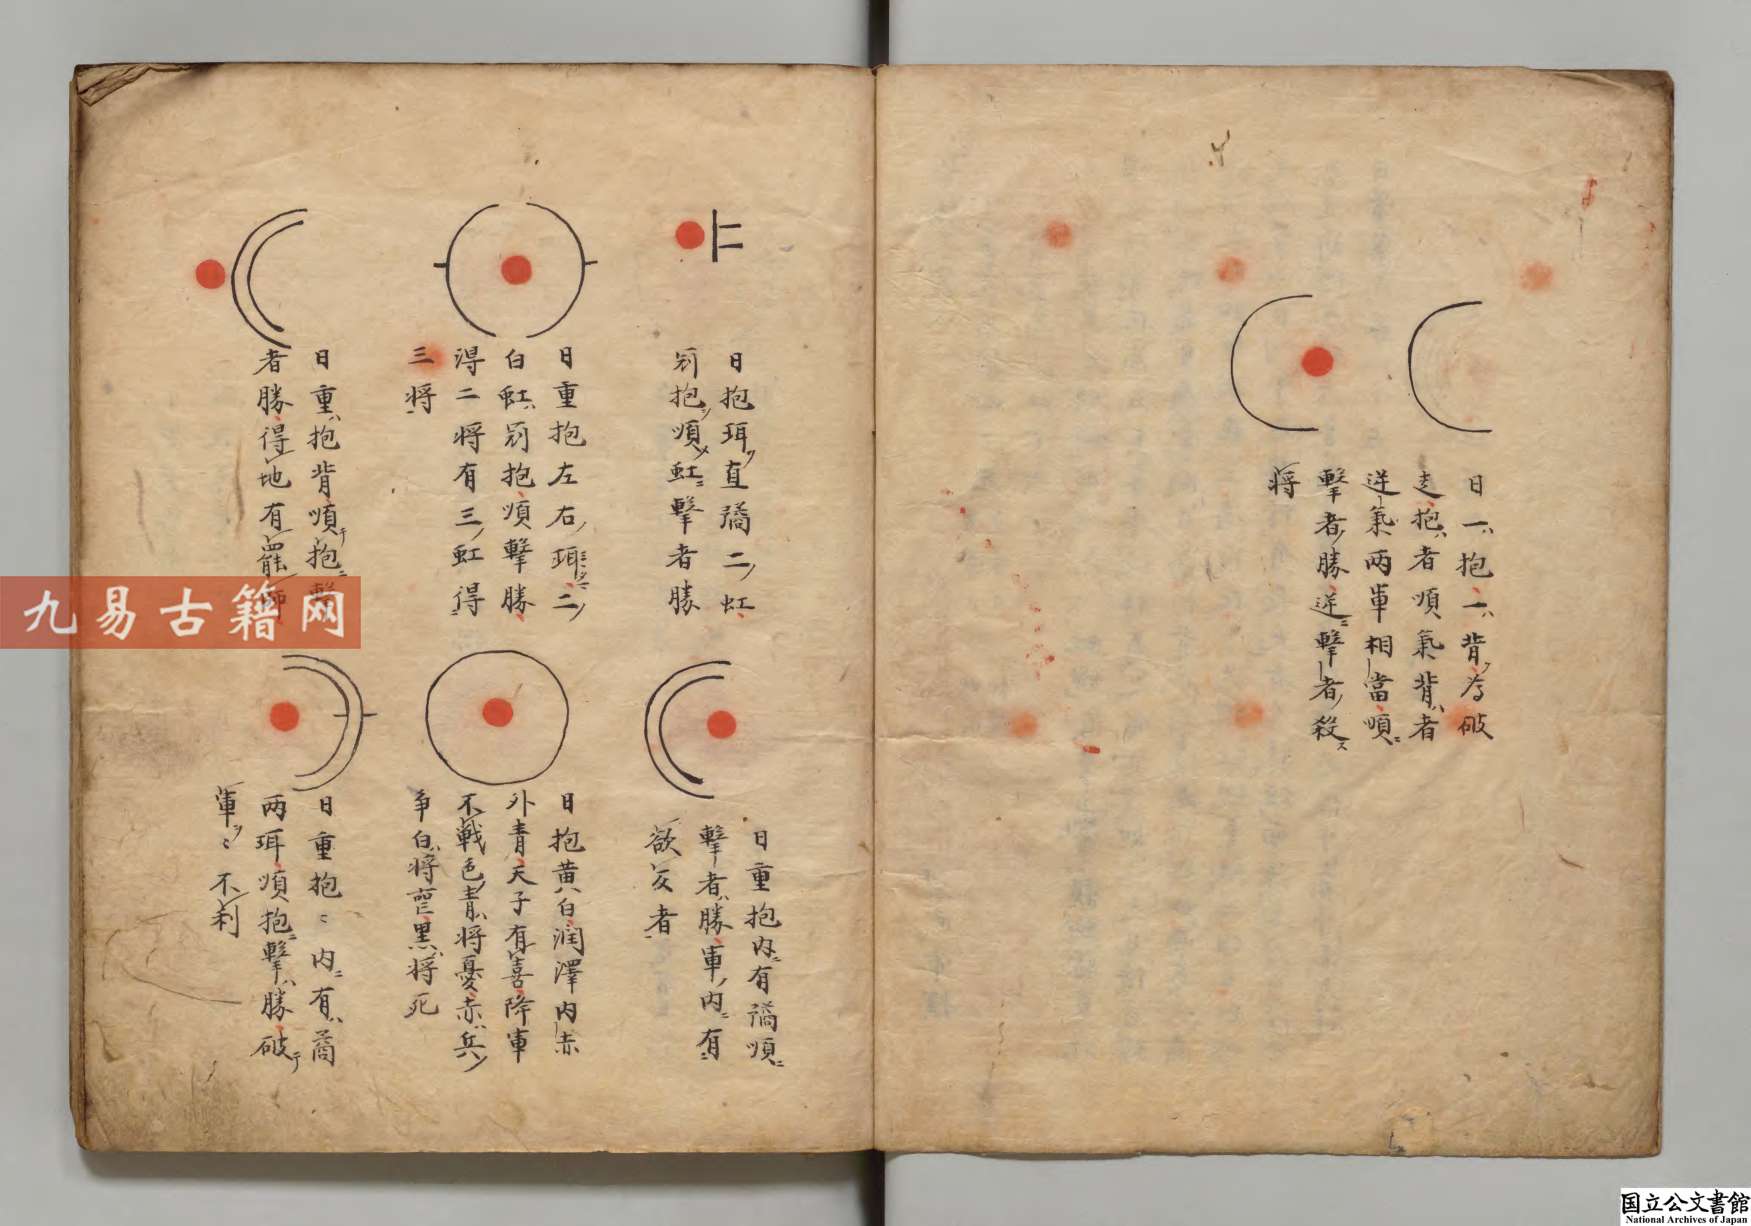 日一抱一背為破
走抱者順氣背者
逆氣兩軍相當順
擊者勝逆擊者殺
將
日抱珥直璚二虹
別抱順虹擊者勝
日重抱左右珥二
白虹別抱順擊勝
得二將有三虹得
三將
日重抱背順抱擊
者勝得地有罷師
日重抱内有璚順
擊者勝軍内有
欲反者
日抱黄白潤澤内赤
外青天子有喜降軍
不戰色青將憂赤兵
争白將喪黒將死
日重抱〻内有璚
兩珥順抱擊勝破
軍〻不利
九易古籍网
国立公文書館
National Archives of Japan